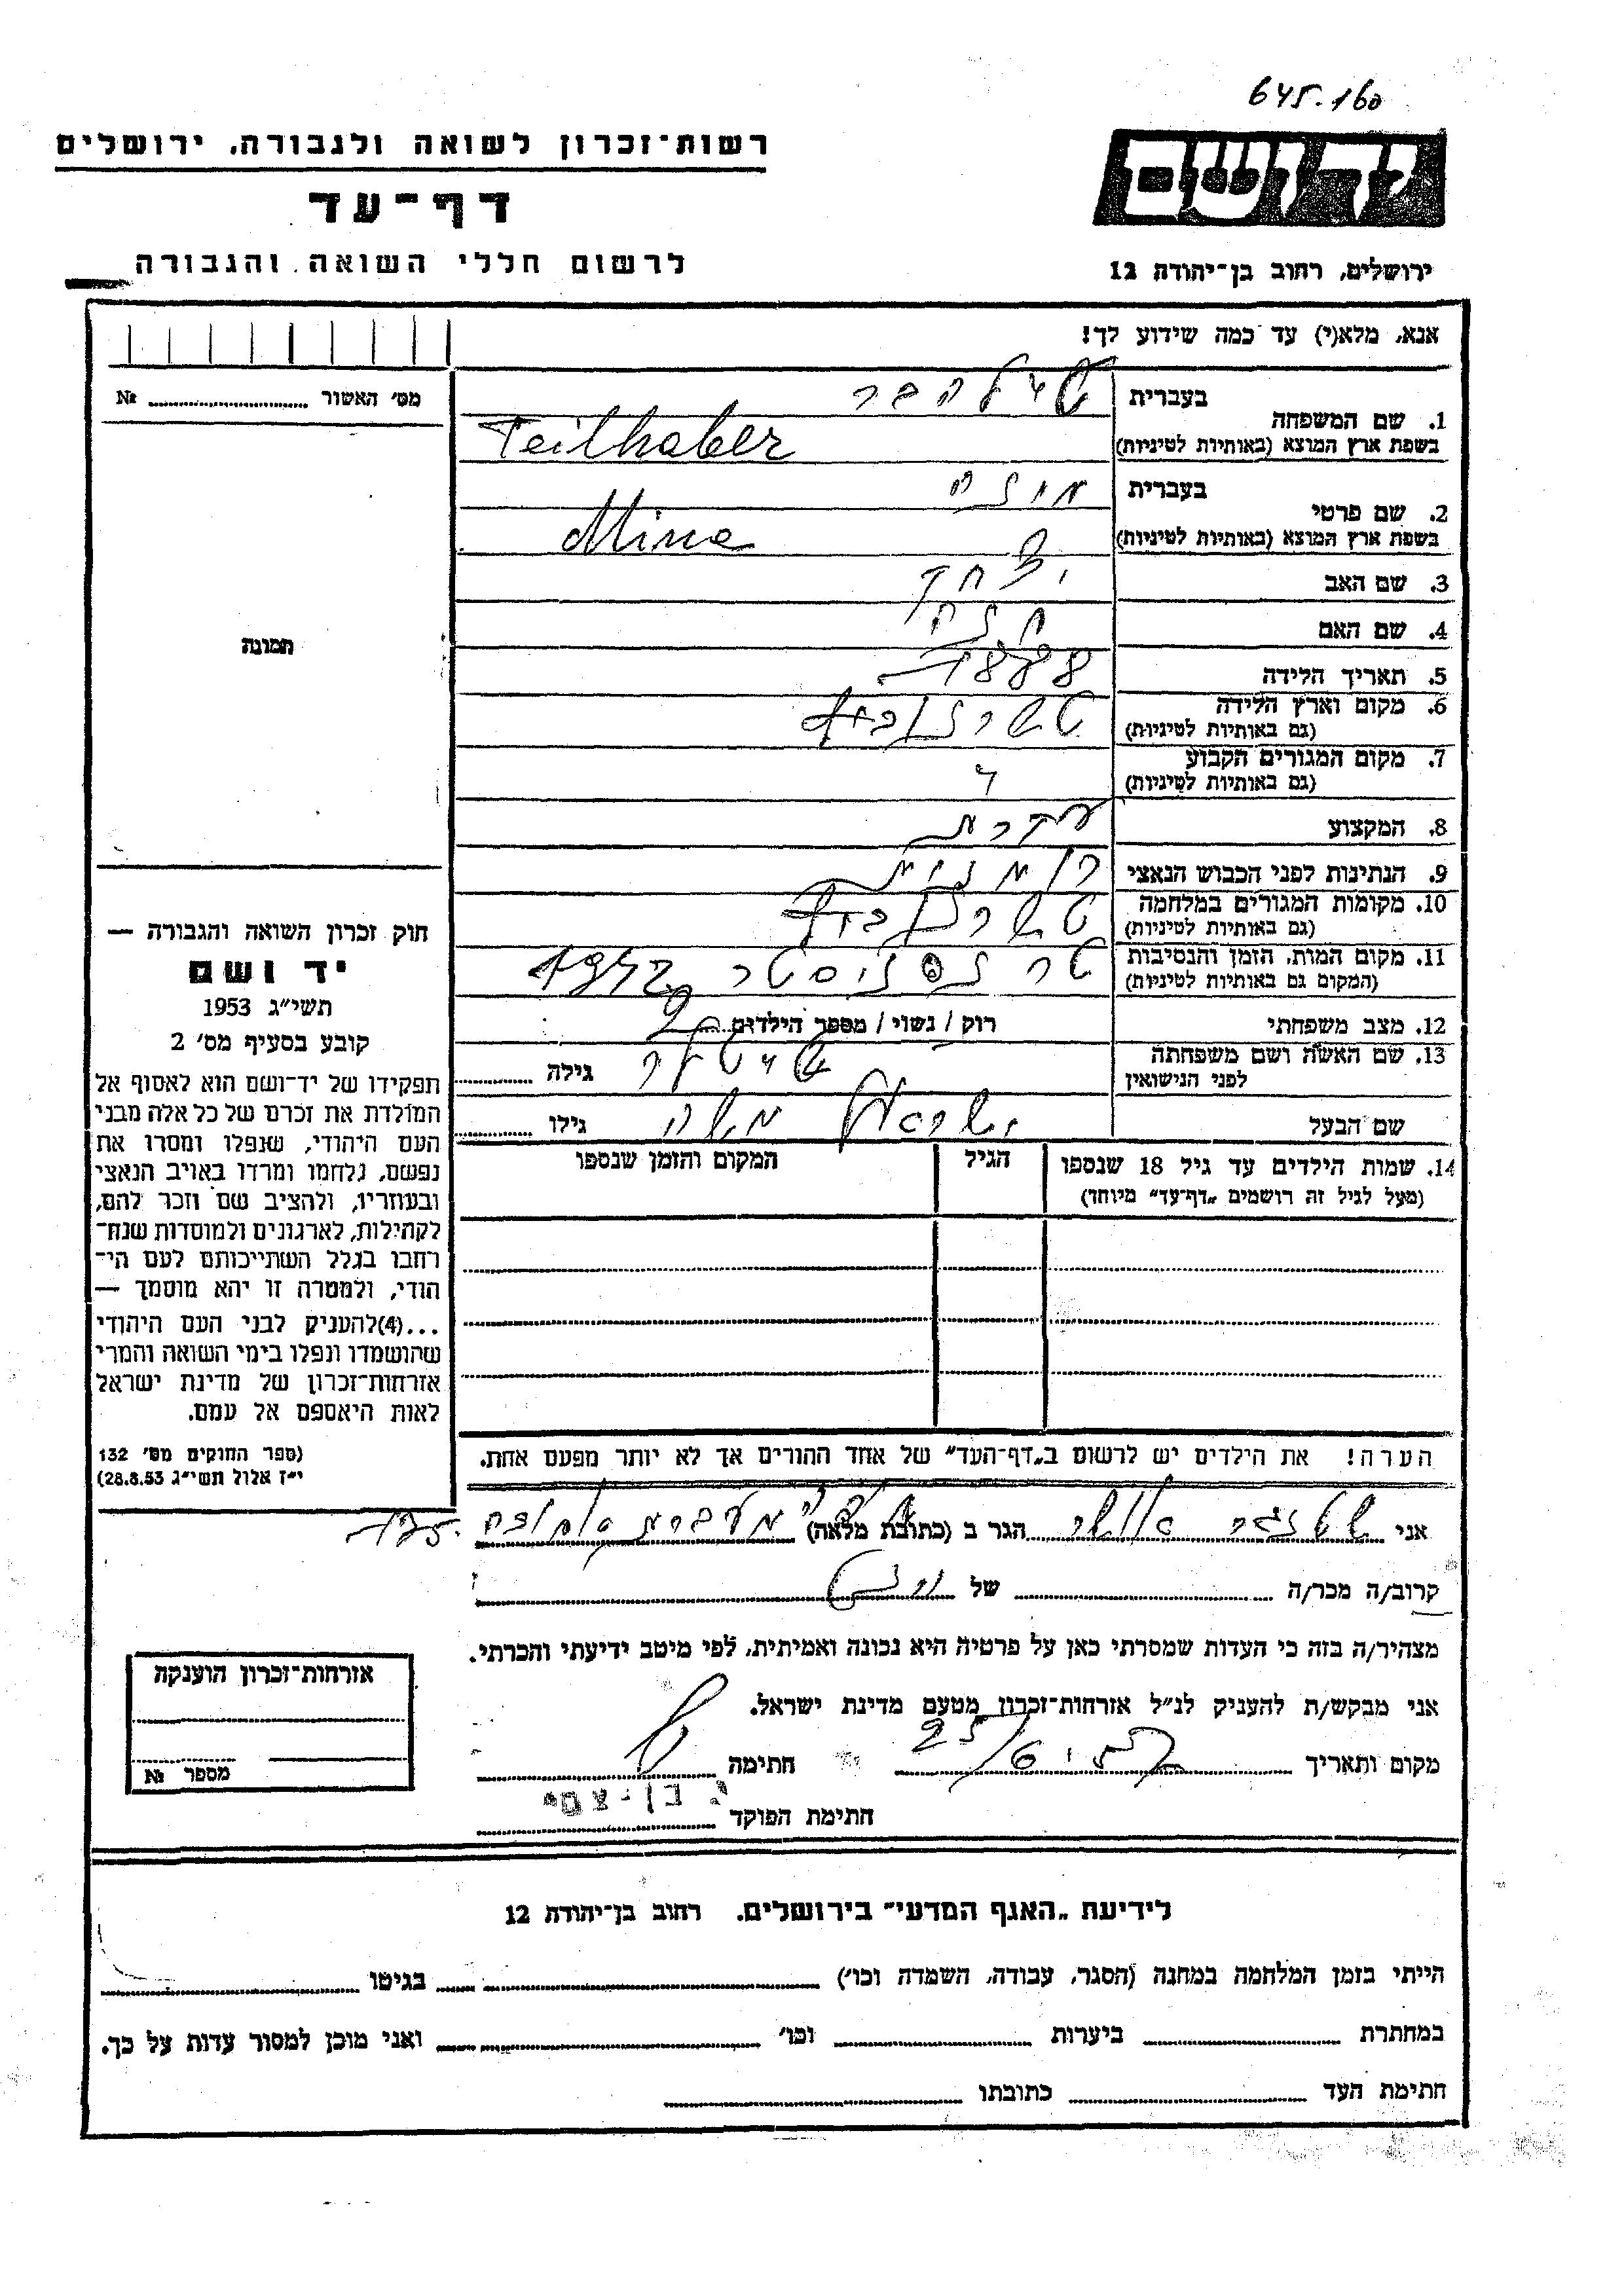 645.160
רשות־זכרון לשואה ולגבורה, ירושלים
דף־עד
לרשום חללי השואה והגבורה
יד ושם
ירושלים, רחוב בן־יהודה 12
אנא, מלא(י) עד כמה שידוע לך!
מס׳ האשור № 
תמונה
1. שם המשפחה בעברית טילהבר
בשפת ארץ המוצא (באותיות לטיניות) Teilhaber
2. שם פרטי בעברית מינה
בשפת ארץ המוצא (באותיות לטיניות) Mina
3. שם האב יצחק
4. שם האם חנה
5. תאריך הלידה 1888
6. מקום וארץ הלידה טשרנוביץ
(גם באותיות לטיניות)
7. מקום המגורים הקבוע
(גם באותיות לטיניות)
8. המקצוע עקרת
9. הנתינות לפני הכבוש הנאצי רומנית
10. מקומות המגורים במלחמה טשרנוביץ
(גם באותיות לטיניות)
11. מקום המות, הזמן והנסיבות טרנסניסטר 1942
(המקום גם באותיות לטיניות)
12. מצב משפחתי רוק / נשוי / מספר הילדים 2
13. שם האשה ושם משפחתה
לפני הנישואין גילה
שם הבעל משה גילו
14. שמות הילדים עד גיל 18 שנספו הגיל המקום והזמן שנספו
(מעל לגיל זה רושמים „דף־עד” מיוחד)
הערה! את הילדים יש לרשום ב„דף־העד” של אחד ההורים אך לא יותר מפעם אחת.
חוק זכרון השואה והגבורה —
יד ושם
תשי״ג 1953
קובע בסעיף מס׳ 2
תפקידו של יד־ושם הוא לאסוף אל
המולדת את זכרם של כל אלה מבני
העם היהודי, שנפלו ומסרו את
נפשם, נלחמו ומרדו באויב הנאצי
ובעוזריו, ולהציב שם וזכר להם,
לקהילות, לארגונים ולמוסדות שנח־
רחבו בגלל השתייכותם לעם הי־
הודי, ולמטרה זו יהא מוסמך —
...(4)להעניק לבני העם היהודי
שהושמדו ונפלו בימי השואה והמרי
אזרחות־זכרון של מדינת ישראל
לאות היאספם אל עמם.
(ספר החוקים מס׳ 132
י״ז אלול תשי״ג 28.8.53)
אני הגר ב (כתובת מלאה) מעברת
קרוב/ה מכר/ה של
מצהיר/ה בזה כי העדות שמסרתי כאן על פרטיה היא נכונה ואמיתית, לפי מיטב ידיעתי והכרתי.
אני מבקש/ת להעניק לנ״ל אזרחות־זכרון מטעם מדינת ישראל.
מקום ותאריך חתימה
חתימת הפוקד י. בן־צבי
אזרחות־זכרון הוענקה
מספר №
לידיעת „האגף המדעי” בירושלים, רחוב בן־יהודה 12
הייתי בזמן המלחמה במחנה (הסגר, עבודה, השמדה וכו׳) בגיטו
במחתרת ביערות וכו׳ ואני מוכן למסור עדות על כך.
חתימת העד כתובתו